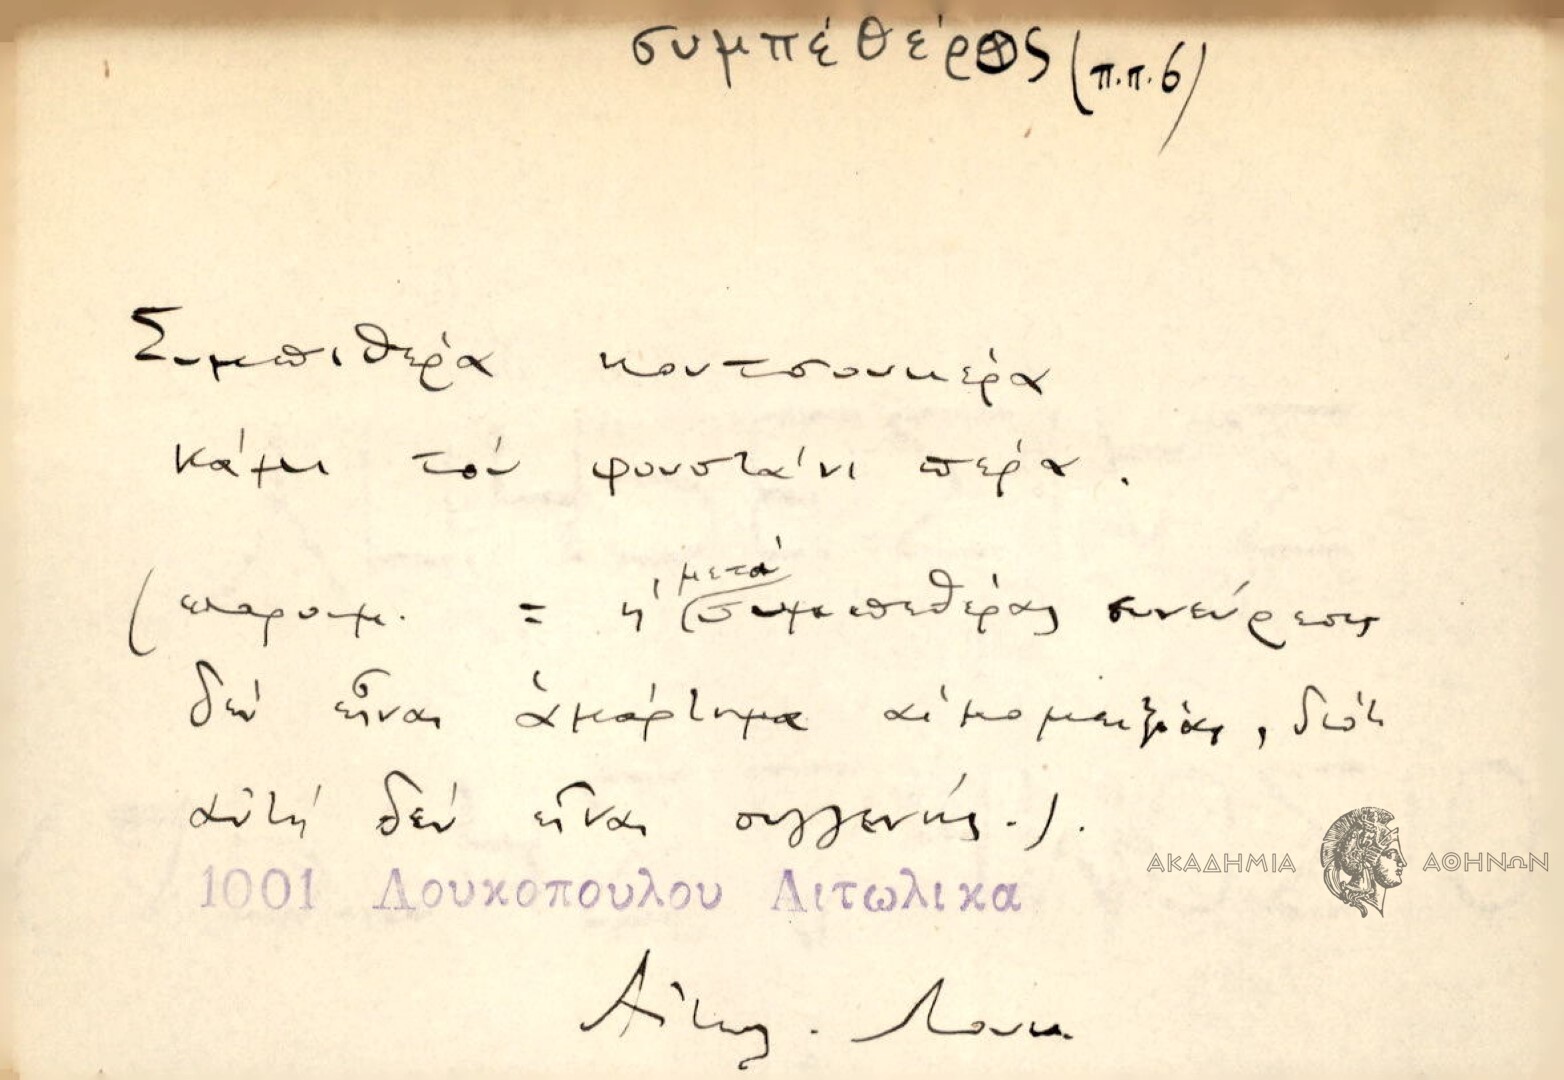 συμπέθερος (π.π. 6)
Συμπιθέρα κουτσουκέρα
κάμι τού φουστάνι πέρα.
(παροιμ. = ἡ μετά συμπεθέρας συνεύρεσις
δέν εἶναι ἁμάρτημα αἱμομειξίας, διότι
αὐτή δέν εἶναι συγγενής.).
1001 Λουκοπουλου Αιτωλικα
ΑΚΑΔΗΜΙΑ ΑΘΗΝΩΝ
Αἰτωλ. Λουκ.